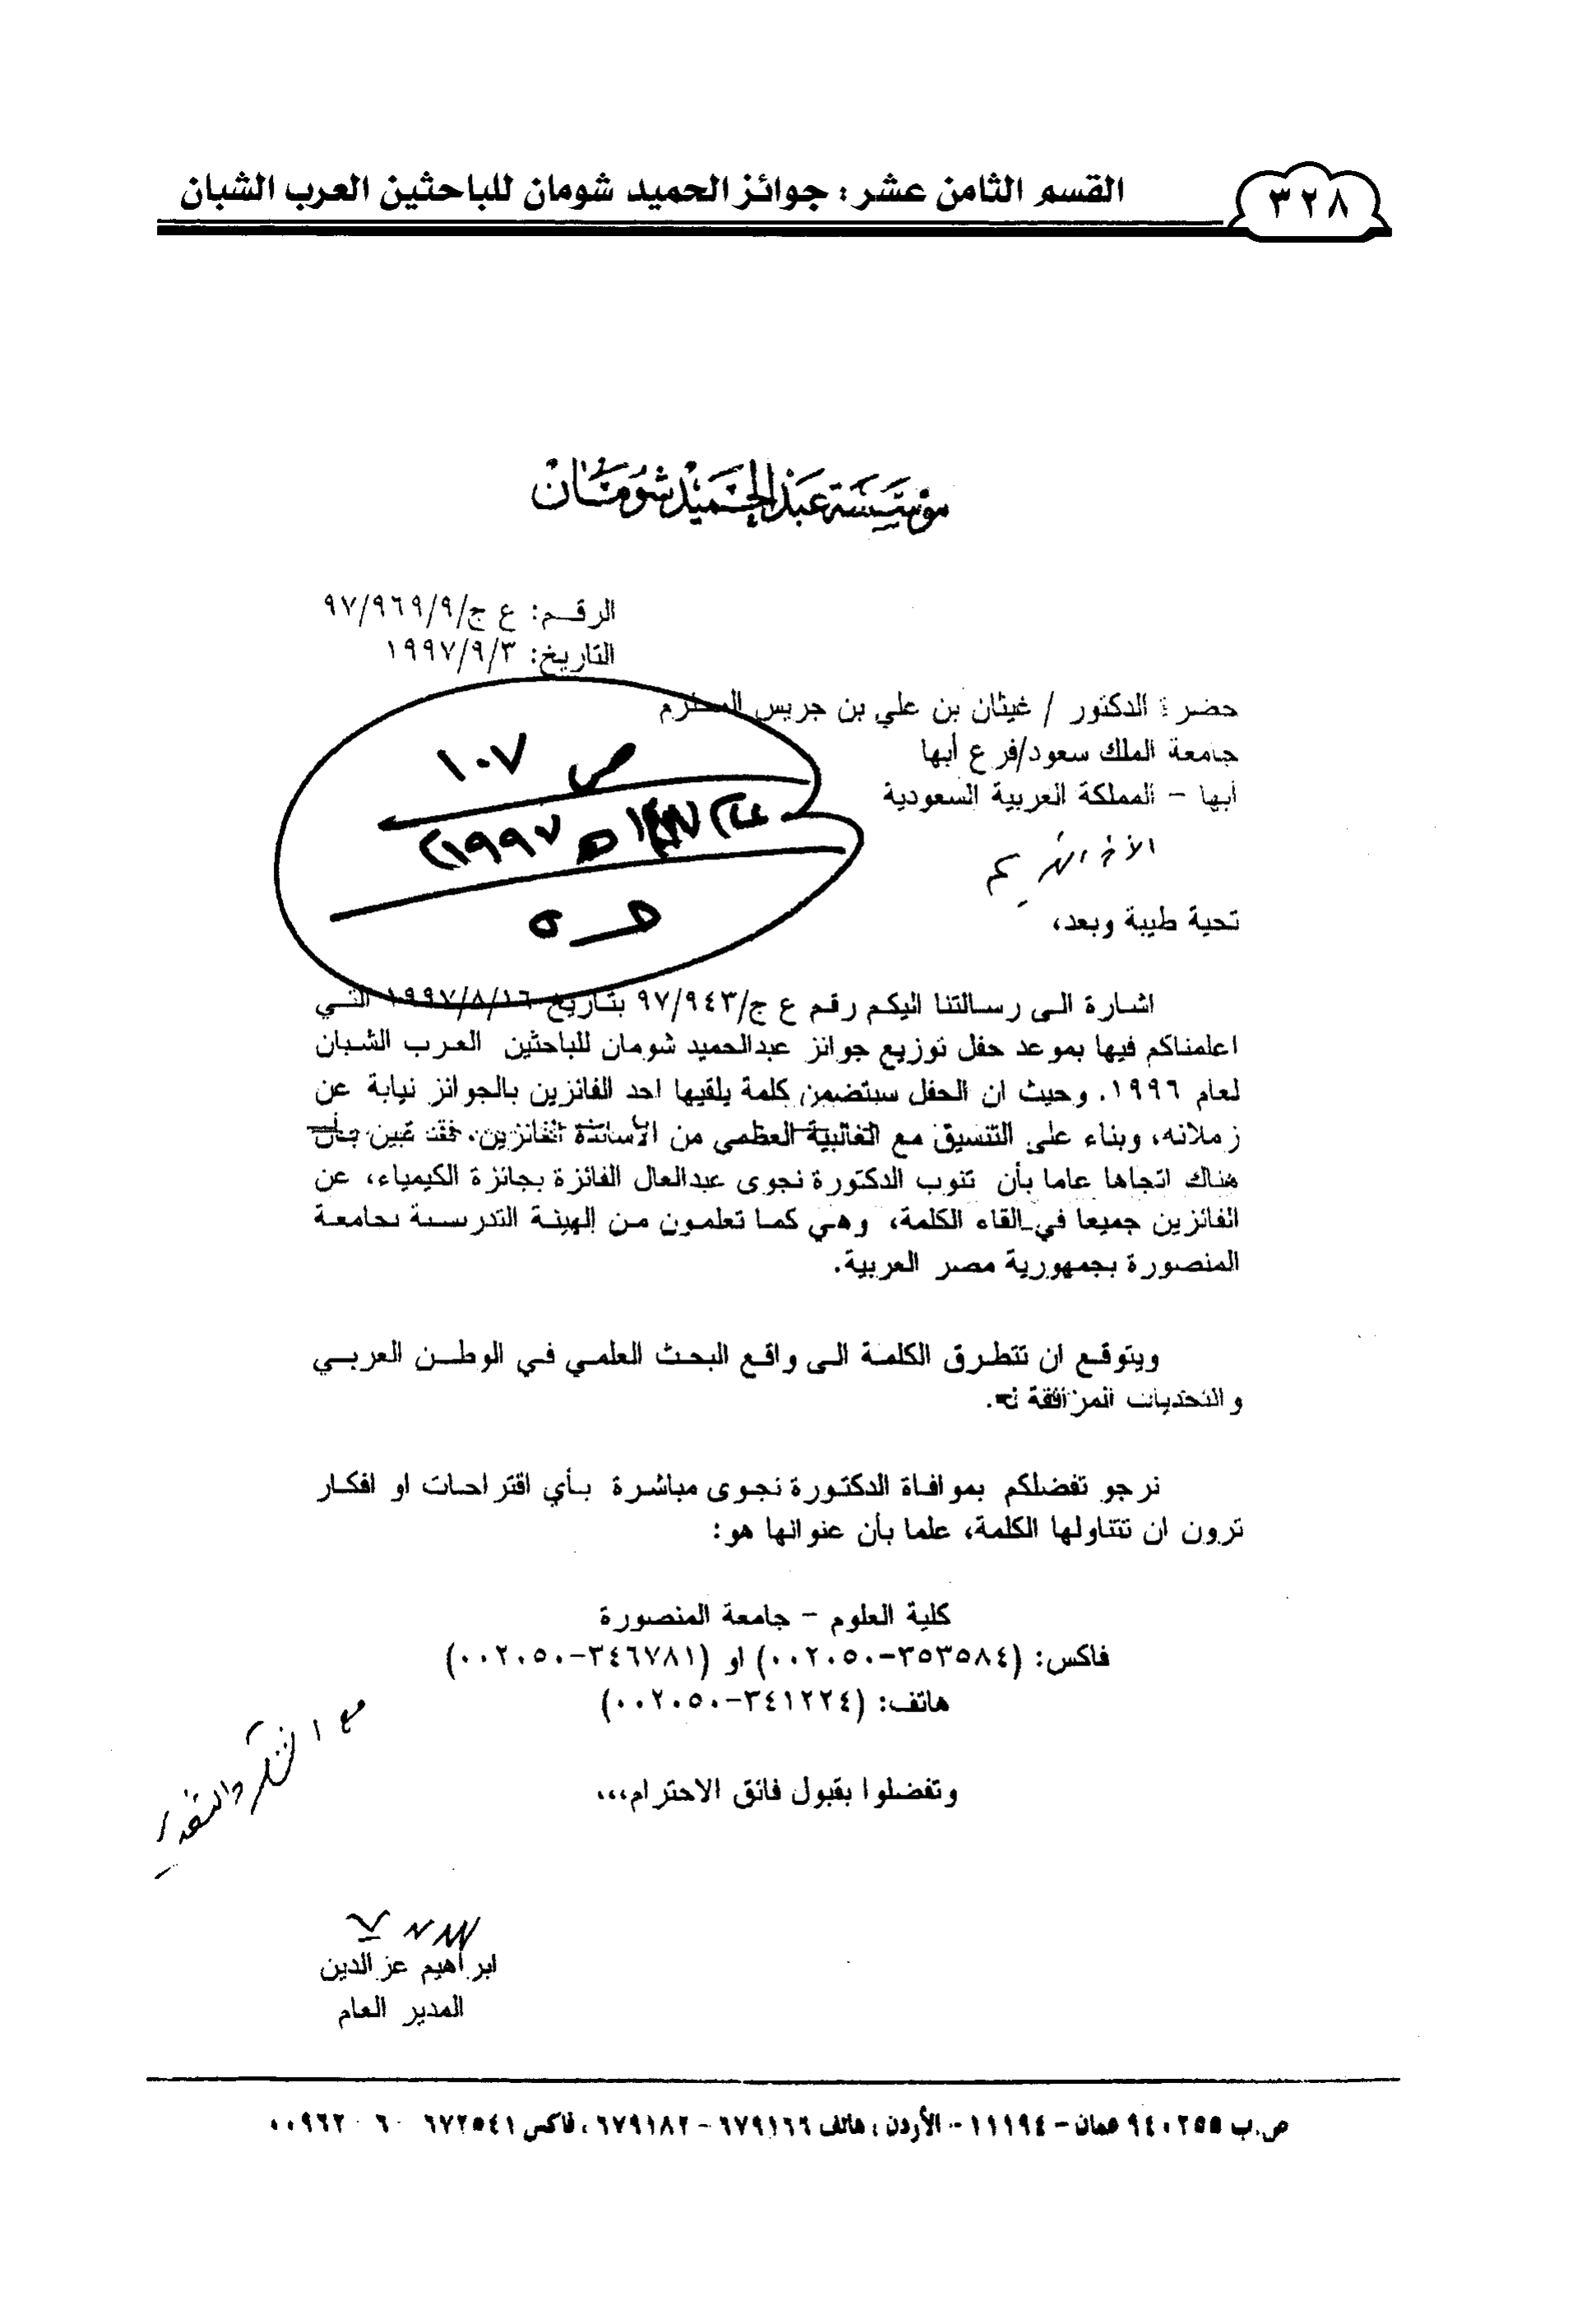 ٣٢٨
القسم الثامن عشر: جوائز الحميد شومان للباحثين العرب الشبان
مؤسسة عبد الحميد شومان
الرقم: ع ج/٩٧/٩٦٩/٩
التاريخ: ١٩٩٧/٩/٣
حضرة الدكتور / غيثان بن علي بن جريس المحترم
جامعة الملك سعود/فرع أبها
أبها - المملكة العربية السعودية
ص ١٠٧
١٩٩٧
الأخ الكريم
تحية طيبة وبعد،
اشارة الى رسالتنا اليكم رقم ع ج/٩٧/٩٤٣ بتاريخ ١٩٩٧/٨/١٦ التي
اعلمناكم فيها بموعد حفل توزيع جوائز عبدالحميد شومان للباحثين العرب الشبان
لعام ١٩٩٦. وحيث ان الحفل سيتضمن كلمة يلقيها احد الفائزين بالجوائز نيابة عن
زملائه، وبناء على التنسيق مع الغالبية العظمى من الأساتذة الفائزين، فقد تبين بأن
هناك اتجاها عاما بأن تنوب الدكتورة نجوى عبدالعال الفائزة بجائزة الكيمياء، عن
الفائزين جميعا في القاء الكلمة، وهي كما تعلمون من الهيئة التدريسية بجامعة
المنصورة بجمهورية مصر العربية.
ويتوقع ان تتطرق الكلمة الى واقع البحث العلمي في الوطن العربي
والتحديات المرافقة له.
نرجو تفضلكم بموافاة الدكتورة نجوى مباشرة بأي اقتراحات او افكار
ترون ان تتناولها الكلمة، علما بأن عنوانها هو:
كلية العلوم - جامعة المنصورة
فاكس: (٣٥٣٥٨٤-٠٠٢٠٥٠) او (٣٤٦٧٨١-٠٠٢٠٥٠)
هاتف: (٣٤١٢٢٤-٠٠٢٠٥٠)
وتفضلوا بقبول فائق الاحترام،،،
مع الشكر والتقدير
ابراهيم عز الدين
المدير العام
ص.ب ٩٤٠٢٥٥ عمان - ١١١٩٤ - الأردن، هاتف ٦٧٩١٦٦ - ٦٧٩١٨٢، فاكس ٦٧٢٥٤١ ٦ ٠٠٩٦٢